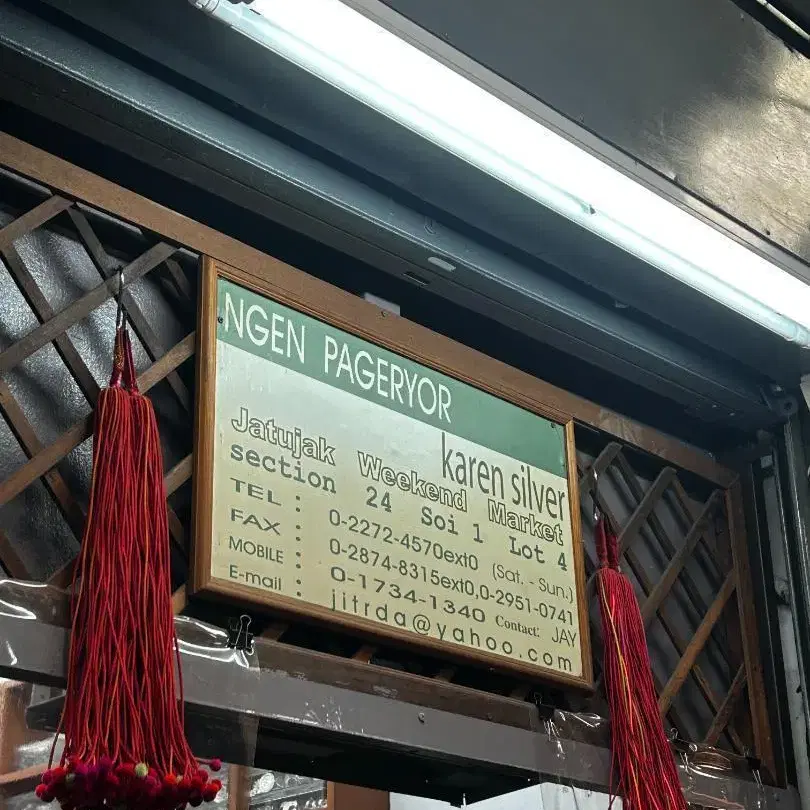 NGEN PAGERYOR
karen silver
Jatujak Weekend Market
section 24 Soi 1 Lot 4
TEL : 0-2272-4570ext0 (Sat. - Sun.)
FAX : 0-2874-8315ext0,0-2951-0741
MOBILE : 0-1734-1340 Contact: JAY
E-mail : jitrda@yahoo.com